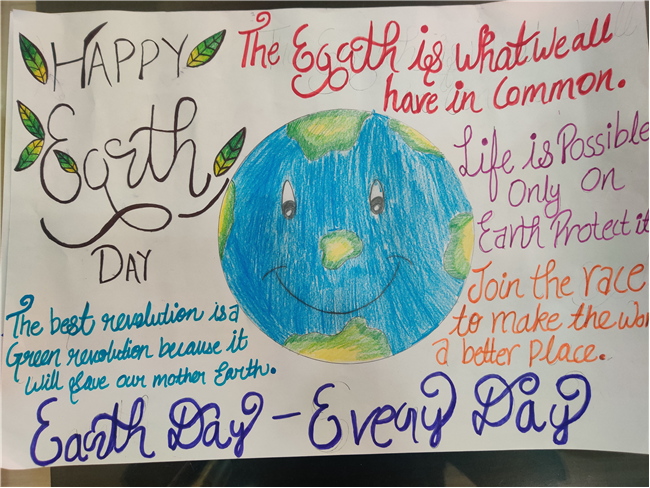 HAPPY
Earth
DAY
The Earth is what we all
have in Common.
Life is Possible
Only on
Earth Protect it
Join the race
to make the Wor
a better place.
The best revolution is a
Green revolution because it
will Save our mother Earth.
Earth Day - Every Day